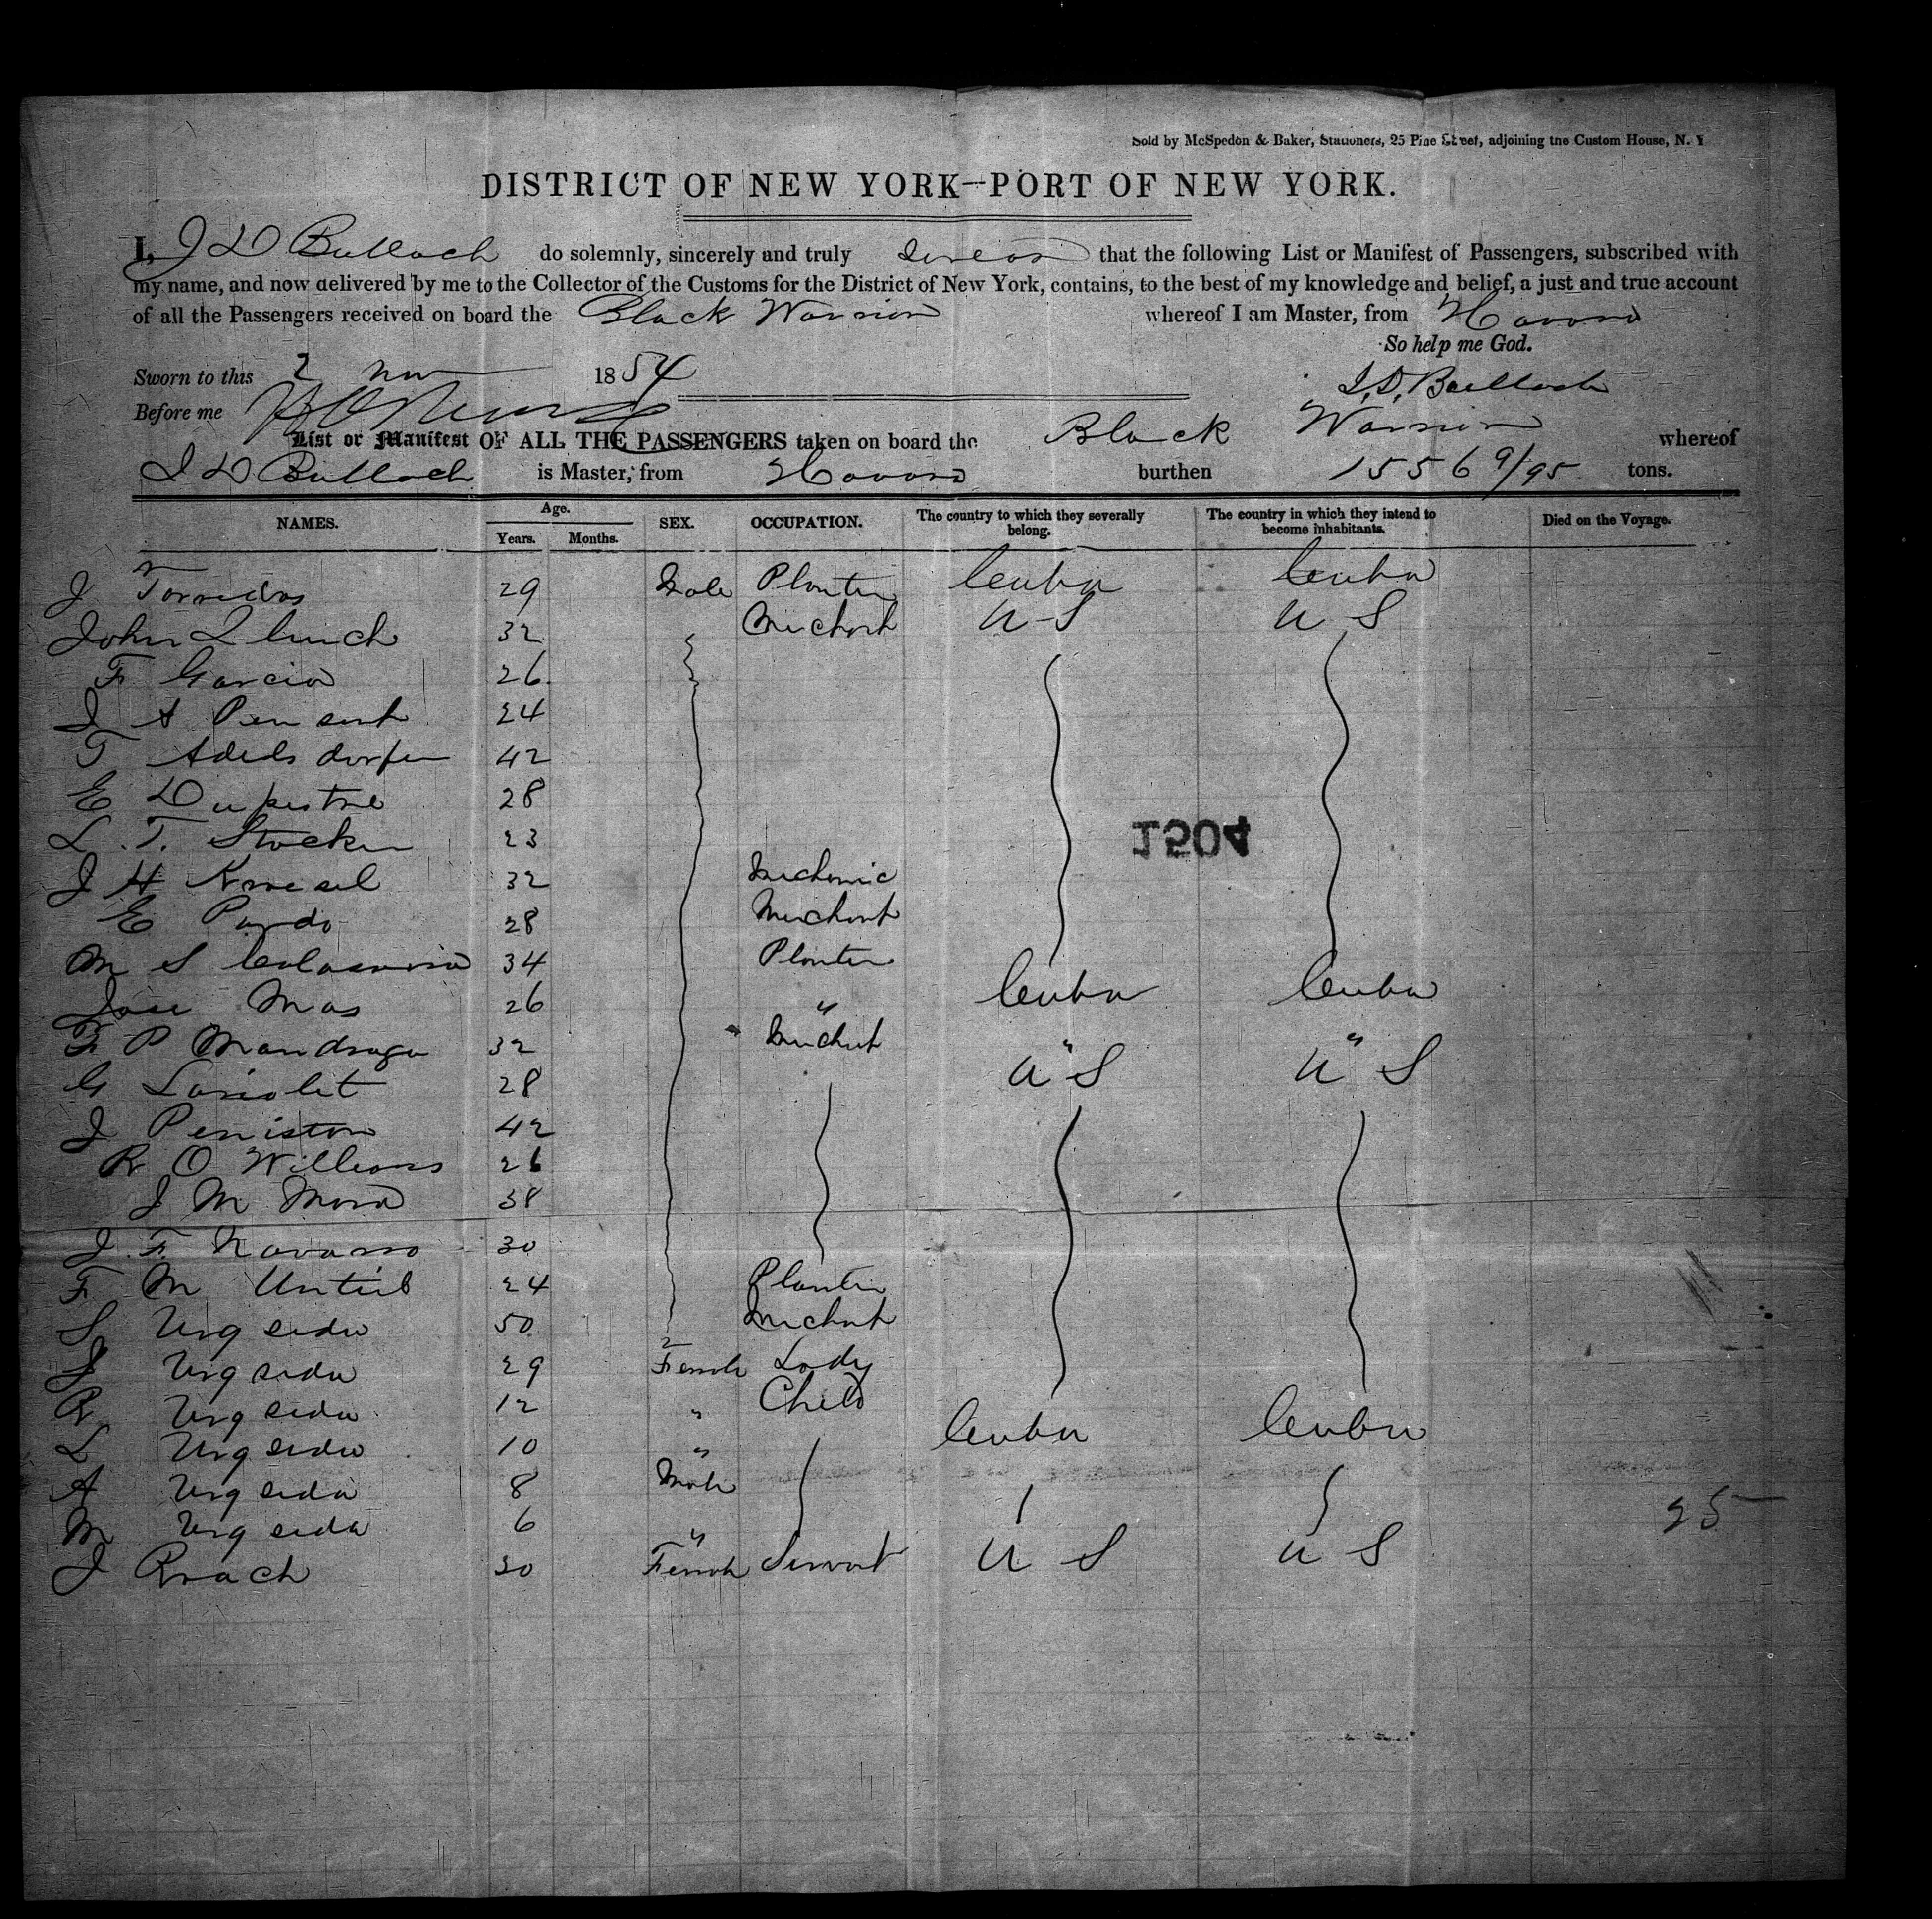 Sold by McSpedon & Baker, Stationers, 25 Pine Street, adjoining the Custom House, N. Y
DISTRICT OF NEW YORK—PORT OF NEW YORK.
I, J D Bulloch do solemnly, sincerely and truly swear that the following List or Manifest of Passengers, subscribed with
my name, and now delivered by me to the Collector of the Customs for the District of New York, contains, to the best of my knowledge and belief, a just and true account
of all the Passengers received on board the Black Warrior whereof I am Master, from Havana
So help me God.
Sworn to this 2 Nov 1854 J. D. Bulloch
Before me
List or Manifest OF ALL THE PASSENGERS taken on board the Black Warrior whereof
J D Bulloch is Master, from Havana burthen 1556 9/95 tons.
NAMES. Age. Years. Months. SEX. OCCUPATION. The country to which they severally belong. The country in which they intend to become inhabitants. Died on the Voyage.
J 29 Male Planter Cuba Cuba
John L 32 Merchant U S U S
F Garcia 26
J A 24
T 42
E 28
L. T. Stocker 23
J H 32 Mechanic
E Pardo 28 Merchant
M S 34 Planter
Jose Mas 26 " Cuba Cuba
F P Mandraga 32 Merchant " "
G Loriolet 28 U S U S
J Peniston 42
R O Williams 26
J M Mora 38
J. F. Navarro 30
F M 24 Planter
S 50 Merchant
J 29 Female Lady
R 12 " Child Cuba Cuba
L 10 "
A 8 Male
M 6 "
J Roach 30 Female Servant U S U S
25
1504